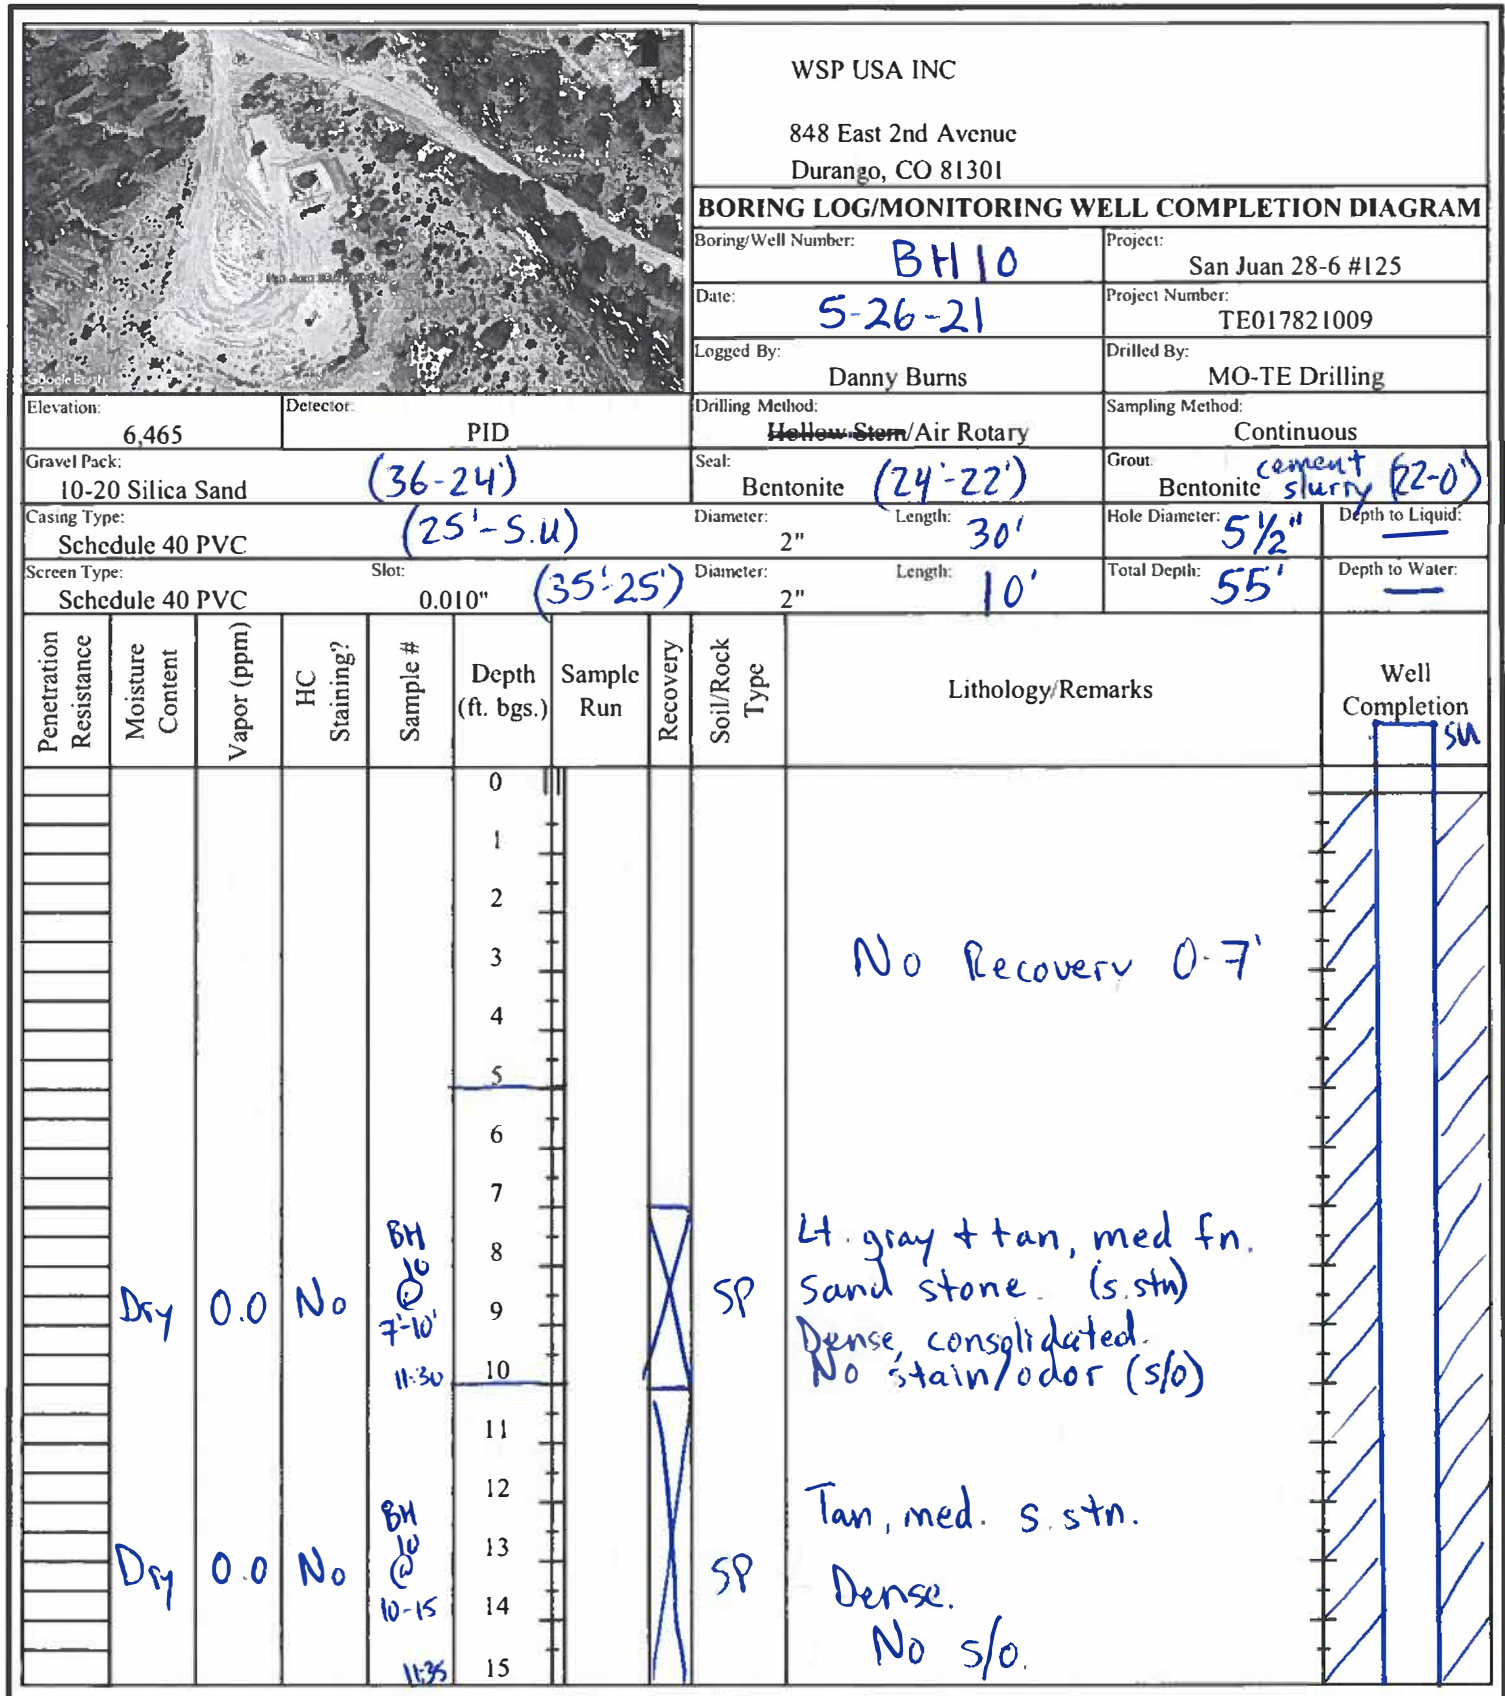 WSP USA INC
848 East 2nd Avenue
Durango, CO 81301
BORING LOG/MONITORING WELL COMPLETION DIAGRAM
Boring/Well Number: BH10
Project: San Juan 28-6 #125
Date: 5-26-21
Project Number: TE017821009
Logged By: Danny Burns
Drilled By: MO-TE Drilling
Google Earth
Elevation: 6,465
Detector: PID
Drilling Method: Hollow Stem/Air Rotary
Sampling Method: Continuous
Gravel Pack: 10-20 Silica Sand (36-24')
Seal: Bentonite (24'-22')
Grout: Bentonite cement slurry (22-0')
Casing Type: Schedule 40 PVC (25'-S.U)
Diameter: 2"
Length: 30'
Hole Diameter: 5 1/2"
Depth to Liquid: —
Screen Type: Schedule 40 PVC
Slot: 0.010" (35'-25')
Diameter: 2"
Length: 10'
Total Depth: 55'
Depth to Water: —
Penetration Resistance
Moisture Content
Vapor (ppm)
HC Staining?
Sample #
Depth (ft. bgs.)
Sample Run
Recovery
Soil/Rock Type
Lithology/Remarks
Well Completion
SU
0
1
2
3
No Recovery 0-7'
4
5
6
7
8
9
10
Dry 0.0 No
BH
10
@
7'-10'
11:30
SP
Lt. gray + tan, med fn.
Sand stone. (s.stn)
Dense, consolidated.
No stain/odor (s/o)
11
12
13
14
15
Dry 0.0 No
BH
10
@
10-15
11:35
SP
Tan, med. s.stn.
Dense.
No s/o.